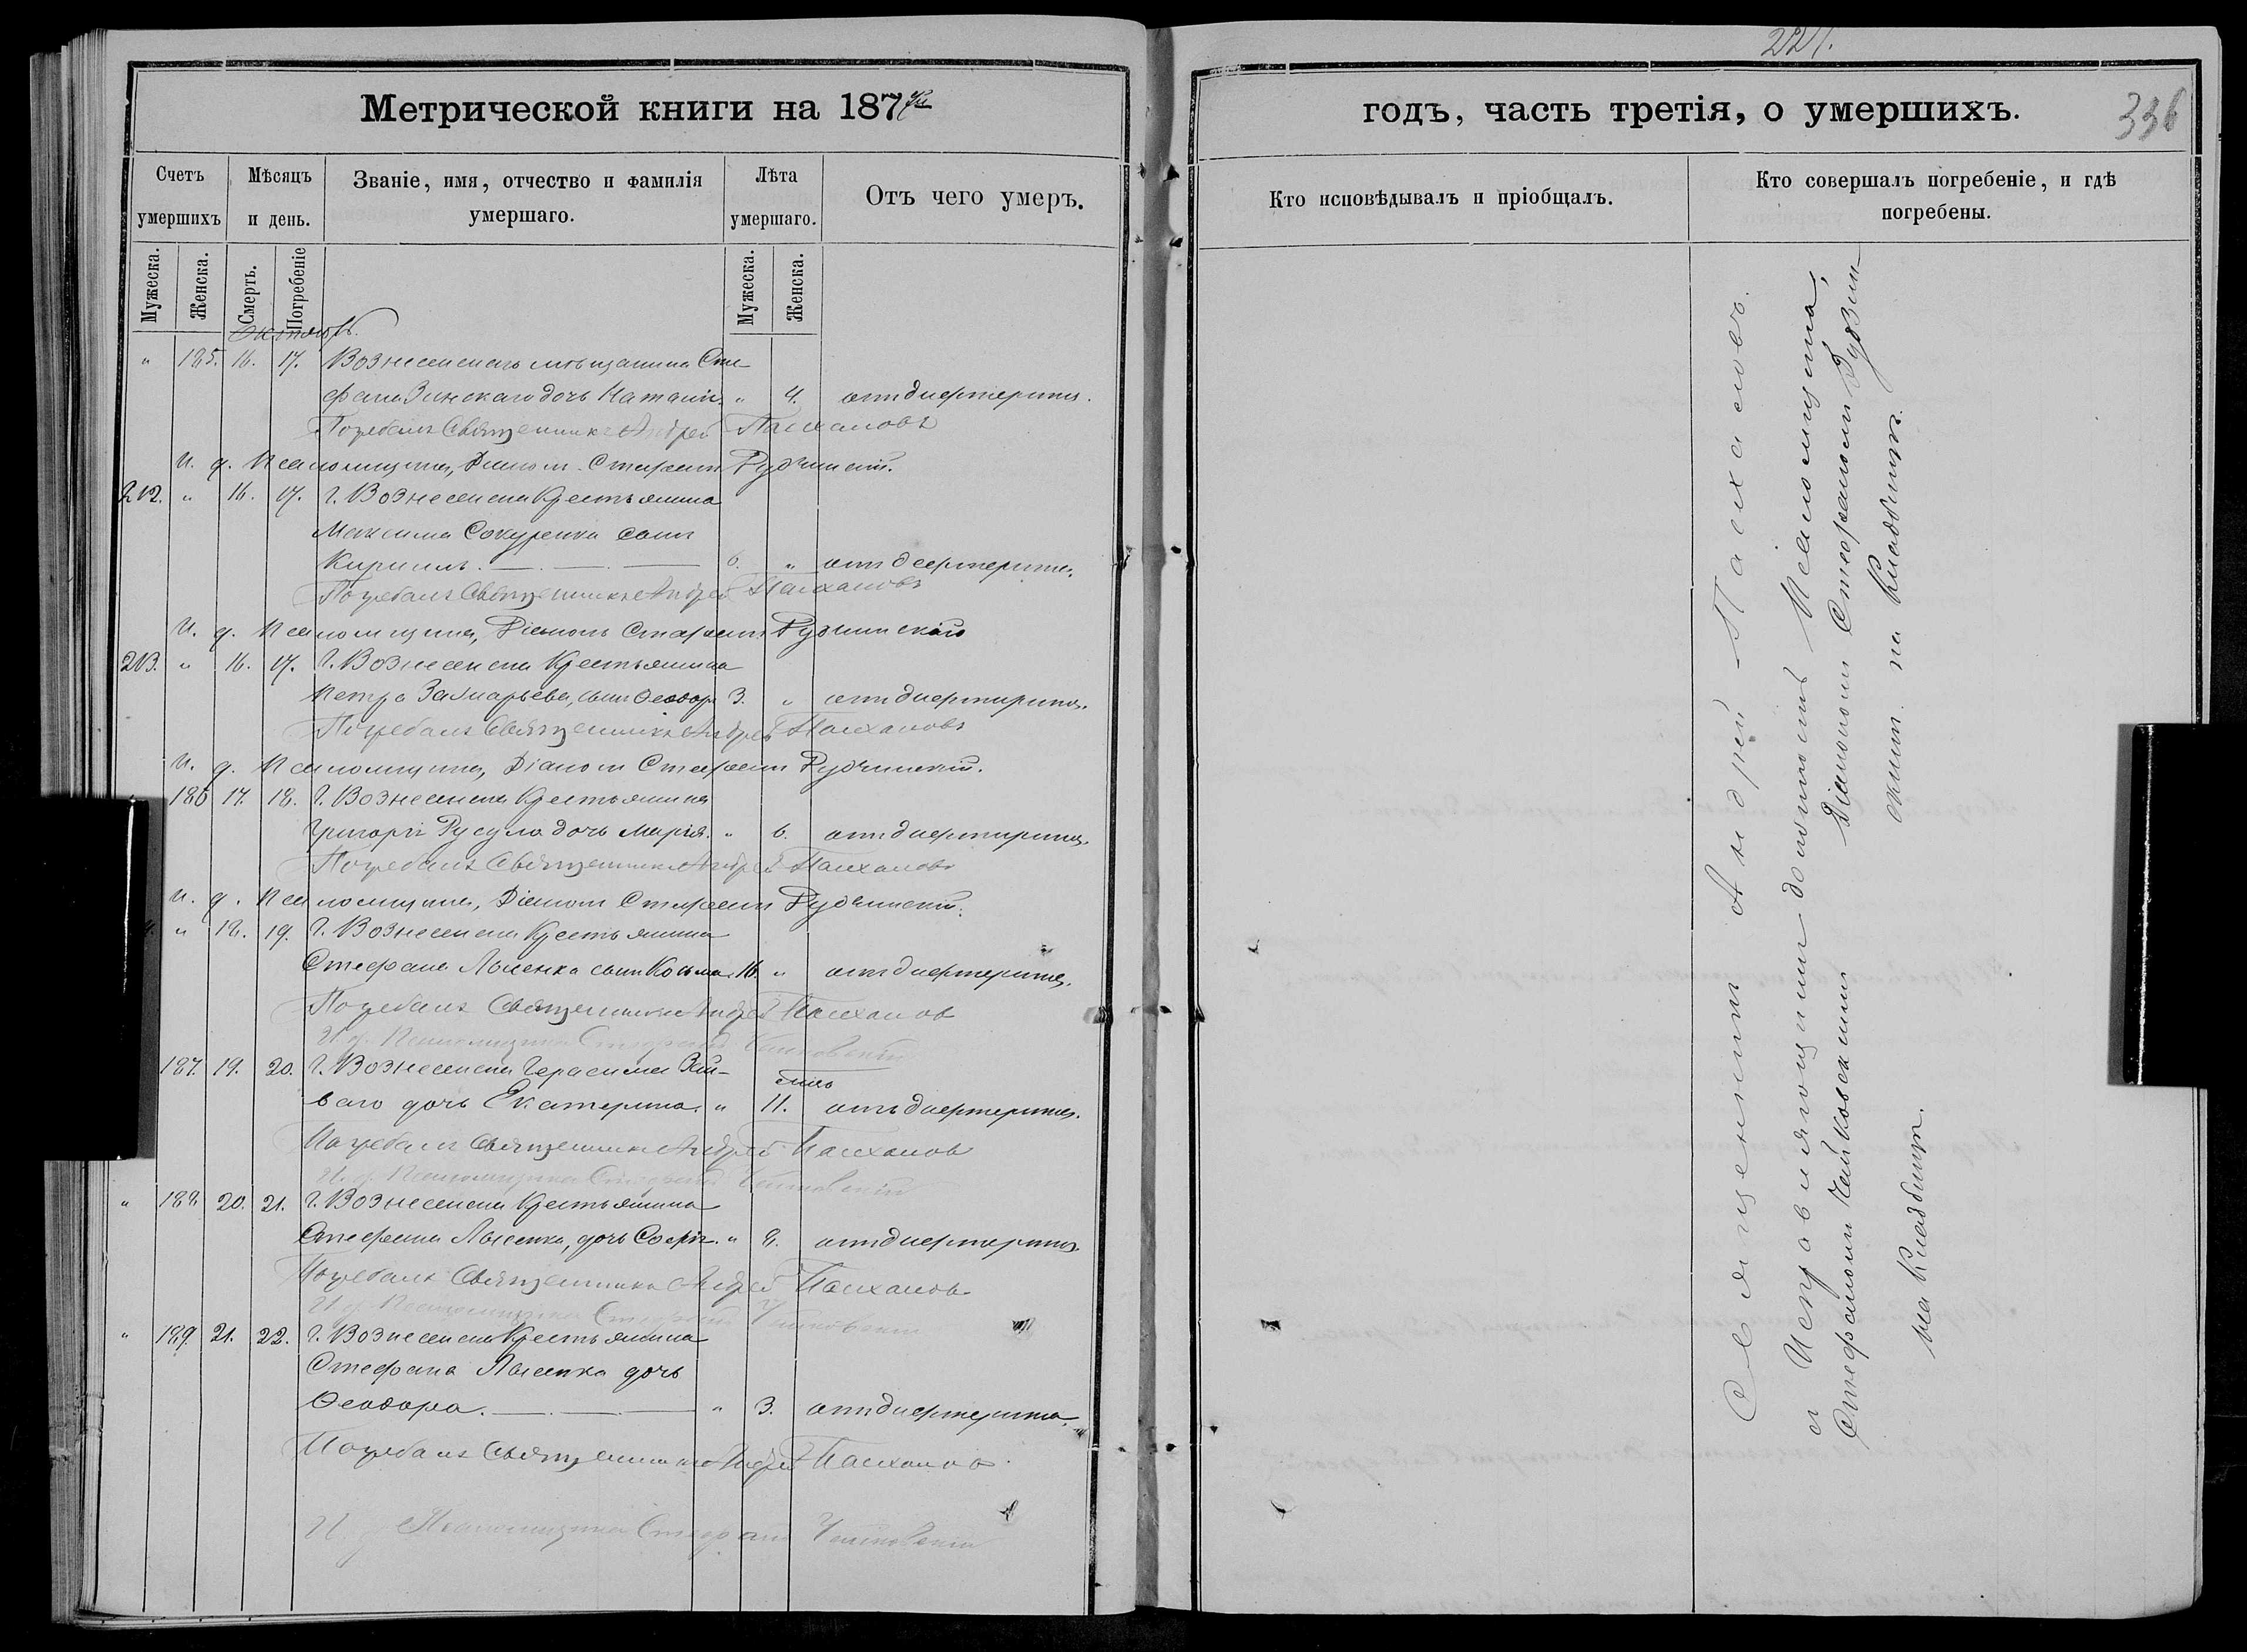 227.
336
Метрической книги на 187
годъ, часть третія, о умершихъ.
Счетъ умершихъ
Мѣсяцъ и день.
Званіе, имя, отчество и фамилія умершаго.
Лѣта умершаго.
Отъ чего умеръ.
Кто исповѣдывалъ и пріобщалъ.
Кто совершалъ погребеніе, и гдѣ погребены.
Мужеска.
Женска.
Смерть.
Погребеніе
Мужеска.
Женска.
" 185. 16. 17. Вознесенскаго мѣщанина Сте
фана дочь " 4. отъ дифтерита.
Погребалъ Священникъ Андрей Пасхаловъ
И. д. Псаломщика, Діаконъ Стефанъ
212. " 16. 17. г. Вознесенска Крестьянина
Максима Сокуренка сынъ
Кирилъ. 6. " отъ дифтерита.
Погребалъ Священникъ Андрей Пасхаловъ
И. д. Псаломщика, Діаконъ Стефанъ
213. " 16. 17. г. Вознесенска Крестьянина
Петра сынъ Ѳеодоръ 3. " отъ дифтерита.
Погребалъ Священникъ Андрей Пасхаловъ
И. д. Псаломщика, Діаконъ Стефанъ
186 17. 18. г. Вознесенска Крестьянина
Григорія дочь Марія. " 6. отъ дифтерита.
Погребалъ Священникъ Андрей Пасхаловъ
И. д. Псаломщика, Діаконъ Стефанъ
" 18. 19. г. Вознесенска Крестьянина
Стефана Лысенка сынъ Косьма. 16 " отъ дифтерита.
Погребалъ Священникъ Андрей Пасхаловъ
И. д. Псаломщика Стефанъ
187. 19. 20. г. Вознесенска Герасима
дочь Екатерина. " 11. отъ дифтерита.
Погребалъ Священникъ Андрей Пасхаловъ
И. д. Псаломщика Стефанъ
" 188. 20. 21. г. Вознесенска Крестьянина
Стефана Лысенка, дочь Софія. " 8. отъ дифтерита.
Погребалъ Священникъ Андрей Пасхаловъ
И. д. Псаломщика Стефанъ
" 189. 21. 22. г. Вознесенска Крестьянина
Стефана Лысенка дочь
Ѳеодора. " 3. отъ дифтерита.
Погребалъ Священникъ Андрей Пасхаловъ
И д Псаломщика Стефанъ
Священникъ Андрей Пасхаловъ.
и Исправляющимъ должность Псаломщика,
Діакономъ Стефаномъ
на Кладбищѣ.
Стефаномъ
на Кладбищѣ.